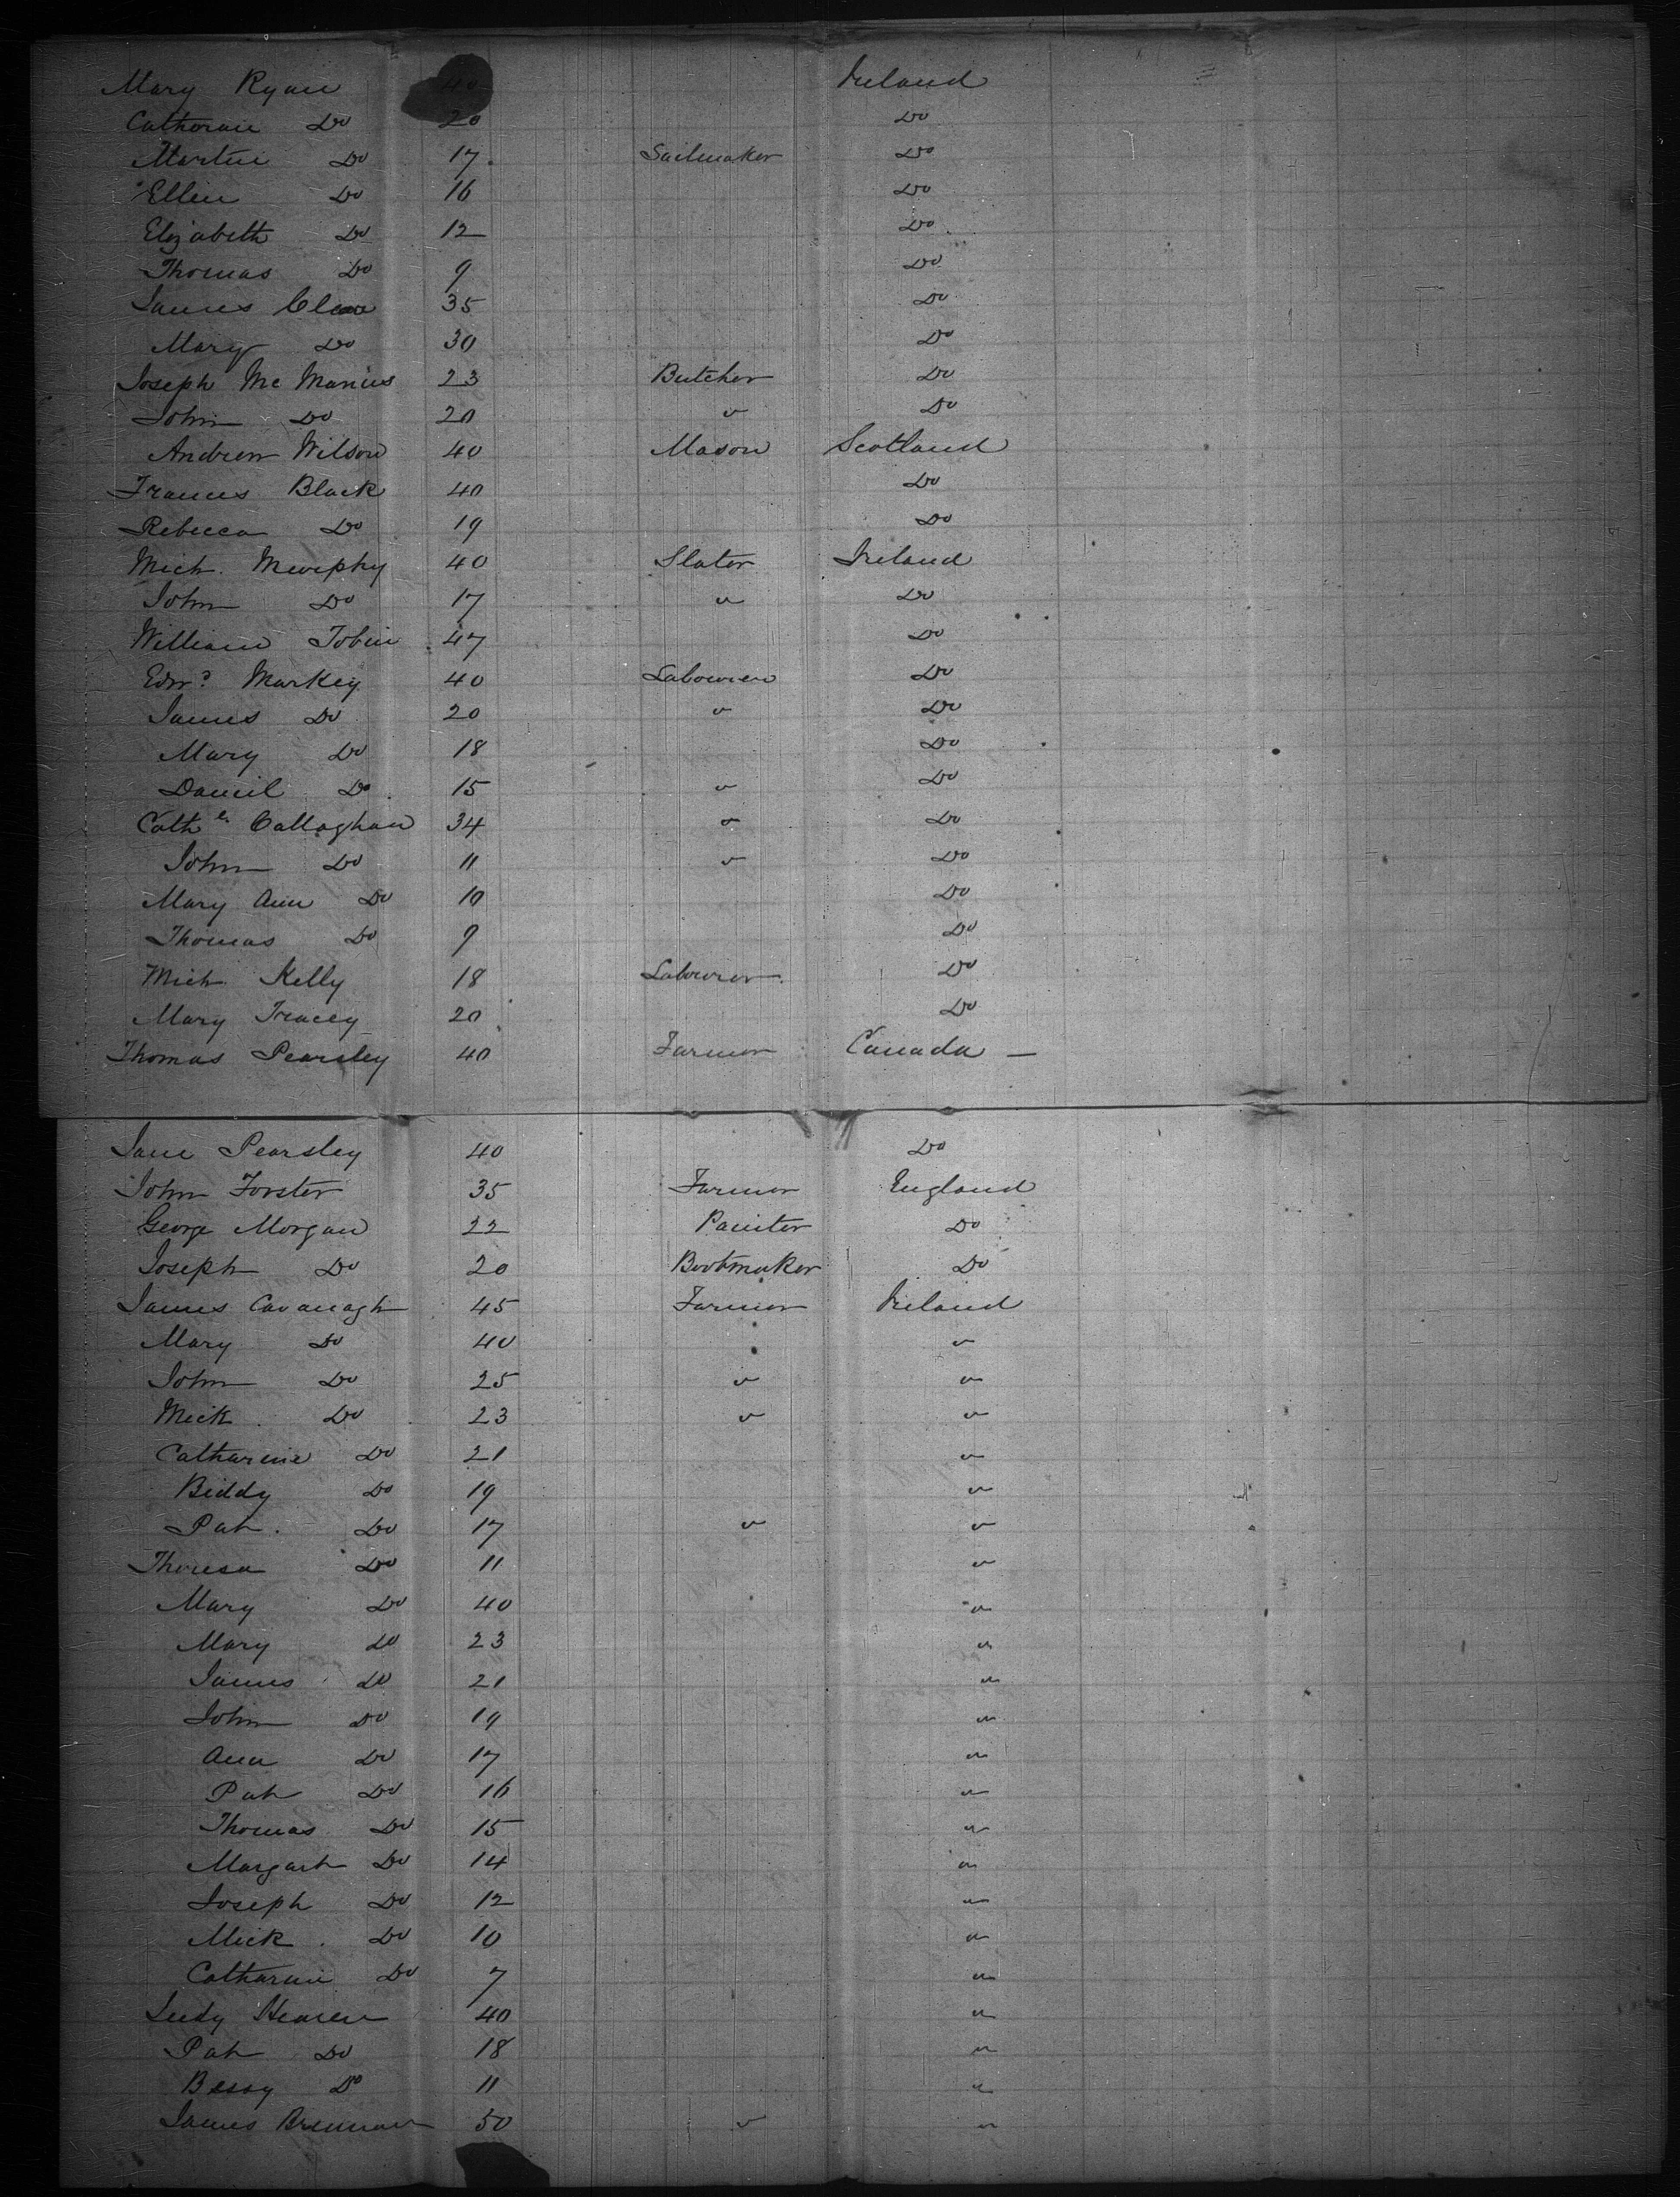 Mary Ryan 40 Ireland
Catherine Do 20 Do
Martin Do 17 Sailmaker Do
Ellen Do 16 Do
Elizabeth Do 12 Do
Thomas Do 9 Do
James 35 Do
Mary Do 30 Do
Joseph Mc Manus 23 Butcher Do
John Do 20 " Do
Andrew Wilson 40 Mason Scotland
Frances Black 40 Do
Rebecca Do 19 Do
Mich. Murphy 40 Slater Ireland
John Do 17 " Do
William Tobin 47 Do
Edwd Markey 40 Labourer Do
James Do 20 " Do
Mary Do 18 Do
Daniel Do 15 " Do
Cathe Callaghan 34 " Do
John Do 11 " Do
Mary Ann Do 10 Do
Thomas Do 9 Do
Mich Kelly 18 Labourer Do
Mary Tracey 20 Do
Thomas Pearsley 40 Farmer Canada —
Jane Pearsley 40 Do
John Forster 35 Farmer England
George Morgan 22 Painter Do
Joseph Do 20 Bootmaker Do
James Cavanagh 45 Farmer Ireland
Mary Do 40 "
John Do 25 " "
Mick Do 23 " "
Catharine Do 21 "
Biddy Do 19 "
Pat. Do 17 " "
Theresa Do 11 "
Mary Do 40 "
Mary Do 23 "
James Do 21 "
John Do 19 "
Ann Do 17 "
Pat Do 16 "
Thomas Do 15 "
Margart Do 14 "
Joseph Do 12 "
Mick Do 10 "
Catharine Do 7 "
Judy 40 "
Pat Do 18 "
Bessy Do 11 "
James Brennan 50 " "